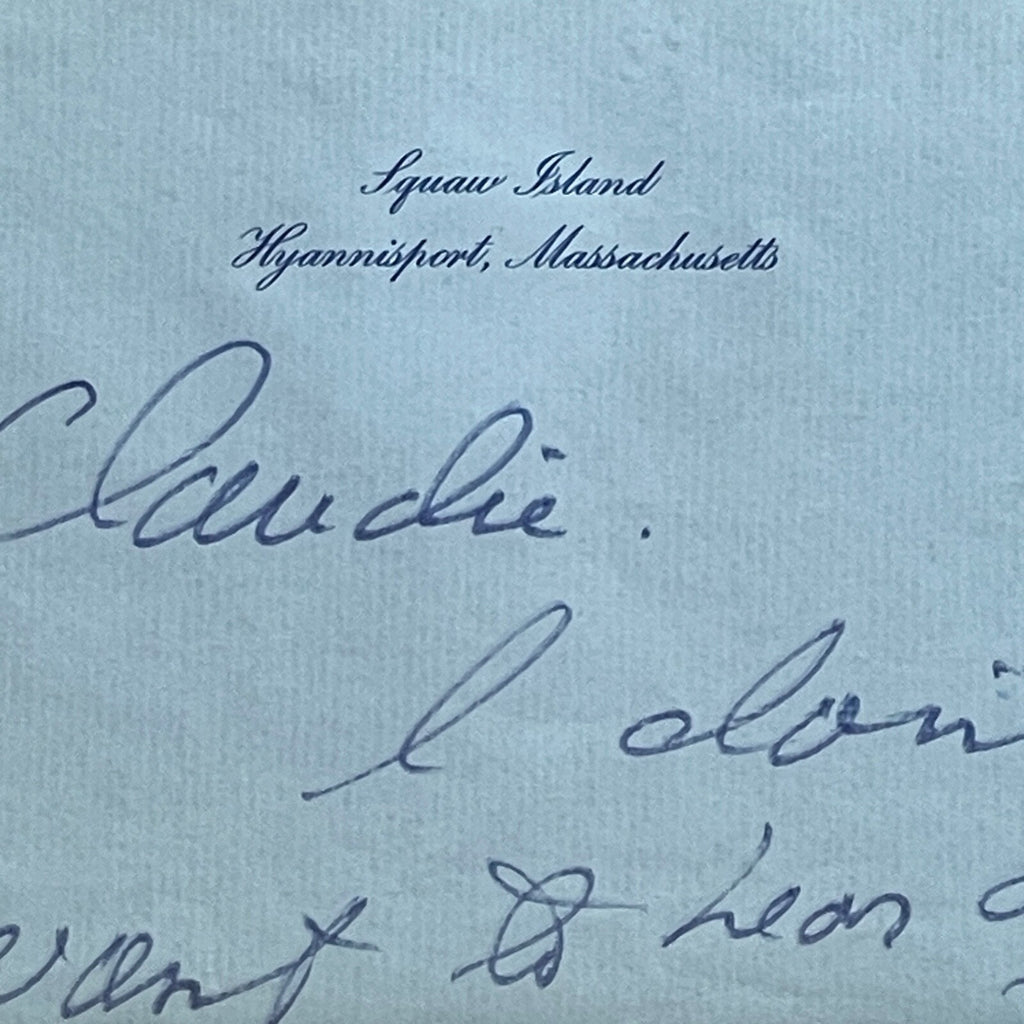 Squaw Island
Hyannisport, Massachusetts
Claudie.
I don'
want to hear